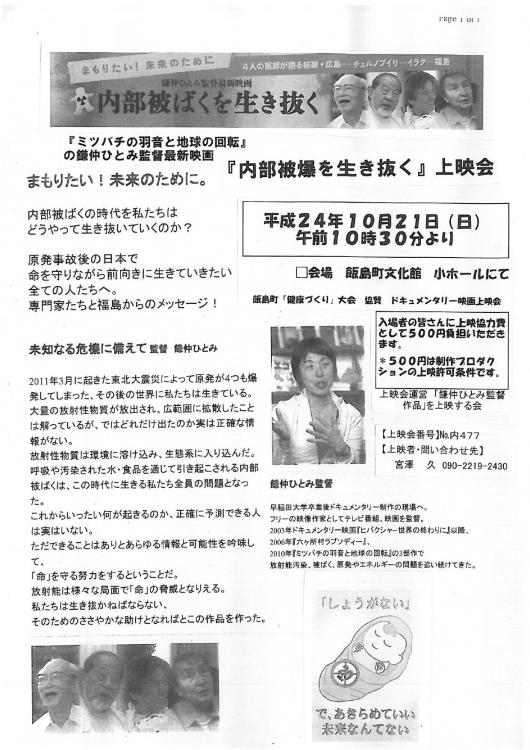 Page 1 of 1
まもりたい！未来のために
4人の医師が語る経験・広島―チェルノブイリ―イラク―福島
鎌仲ひとみ監督最新映画
内部被ばくを生き抜く
『ミツバチの羽音と地球の回転』
の鎌仲ひとみ監督最新映画
まもりたい！未来のために。
『内部被爆を生き抜く』上映会
内部被ばくの時代を私たちは
どうやって生き抜いていくのか？
原発事故後の日本で
命を守りながら前向きに生きていきたい
全ての人たちへ。
専門家たちと福島からのメッセージ！
平成24年10月21日（日）
午前10時30分より
□会場　飯島町文化館　小ホールにて
飯島町「健康づくり」大会　協賛　ドキュメンタリー映画上映会
入場者の皆さんに上映協力費
として500円負担いただき
ます。
＊500円は制作プロダク
ションの上映許可条件です。
上映会運営「鎌仲ひとみ監督
作品」を上映する会
【上映会番号】№内477
【上映者・問い合わせ先】
宮澤　久 090-2219-2430
未知なる危機に備えて 監督 鎌仲ひとみ
2011年3月に起きた東北大震災によって原発が4つも爆
発してしまった、その後の世界に私たちは生きている。
大量の放射性物質が放出され、広範囲に拡散したこと
は解っているが、ではどれだけ出たのか実は正確な情
報がない。
放射性物質は環境に溶け込み、生態系に入り込んだ。
呼吸や汚染された水・食品を通じて引き起こされる内部
被ばくは、この時代に生きる私たち全員の問題となっ
た。
これからいったい何が起きるのか、正確に予測できる人
は実はいない。
ただできることはありとあらゆる情報と可能性を吟味し
て、
「命」を守る努力をするということだ。
放射能は様々な局面で「命」の脅威となりえる。
私たちは生き抜かねばならない、
そのためのささやかな助けとなればとこの作品を作った。
鎌仲ひとみ監督
早稲田大学卒業後ドキュメンタリー制作の現場へ。
フリーの映像作家としてテレビ番組、映画を監督。
2003年ドキュメンタリー映画『ヒバクシャー世界の終わりに』以降、
2006年『六ヶ所村ラプソディー』、
2010年『ミツバチの羽音と地球の回転』の3部作で
放射能汚染、被ばく、原発やエネルギーの問題を追い続けてきた。
「しょうがない」
で、あきらめていい
未来なんてない